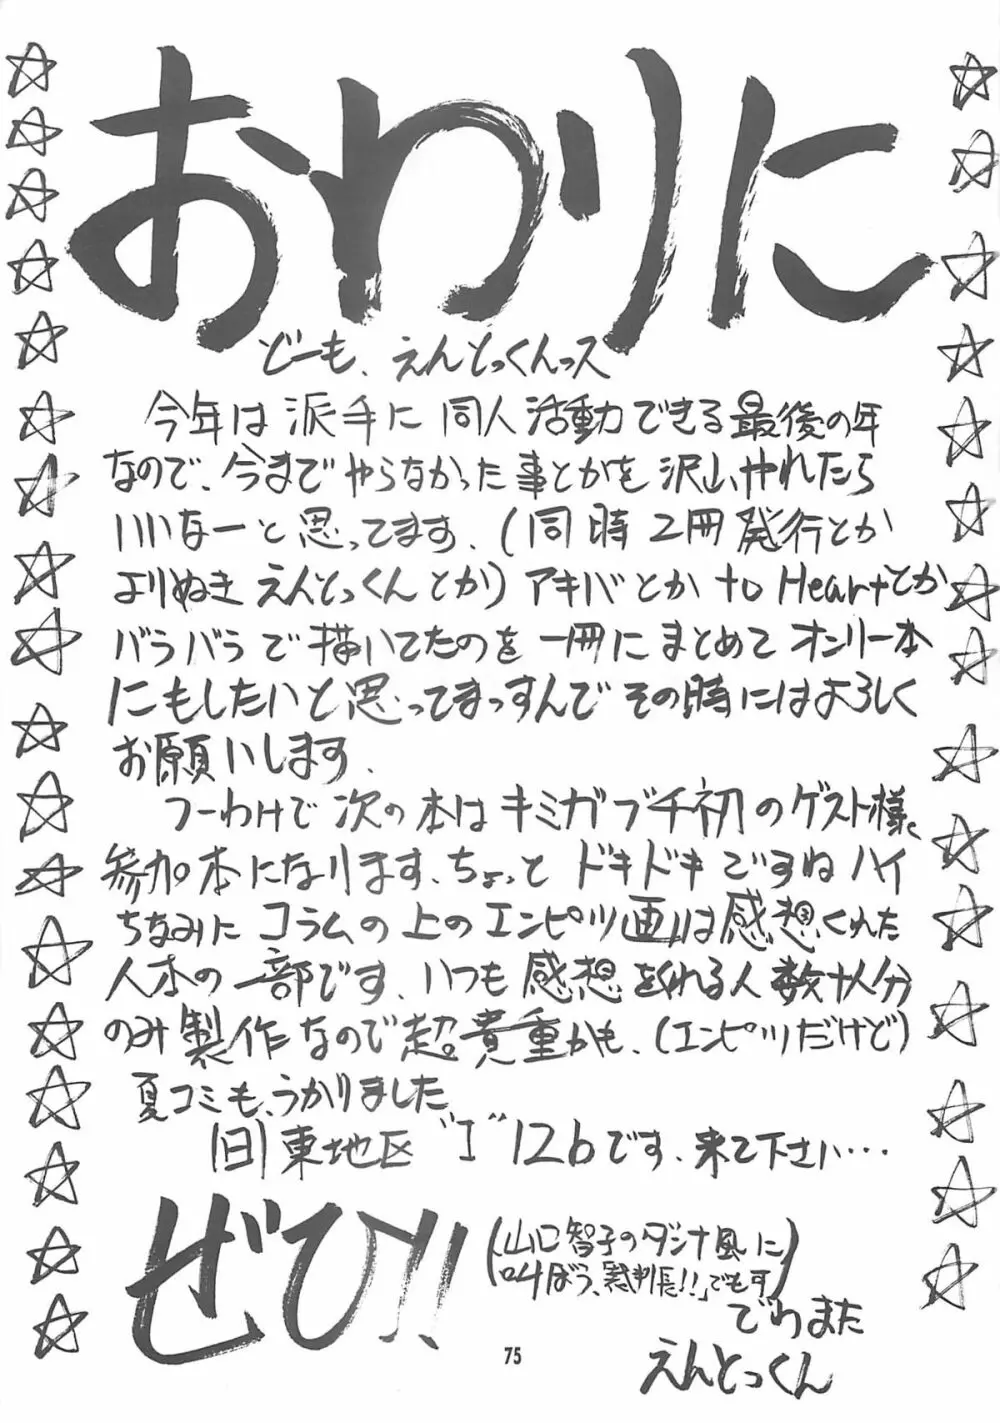 おわりに
どーも、えんとっくんっス
今年は派手に同人活動できる最後の年
なので、今までやらなかった事とかを沢山、やれたら
いいなーと思ってます。(同時2冊発行とか
よりぬきえんとっくんとか)アキバとかto Heartとか
バラバラで描いてたのを一冊にまとめてオンリー本
にもしたいと思ってまっすんでその時にはよろしく
お願いします。
つーわけで次の本はキミガブチ初のゲスト様
参加本になります、ちょっとドキドキですねハイ
ちなみにコラムの上のエンピツ画は感想くれた
人本の一部です、いつも感想をくれる人数十人分
のみ製作なので超貴重かも、(エンピツだけど)
夏コミも、うかりました
(日)東地区"I"12bです、来て下さい…
ぜひ!!
(山口智子のダシナ風に
叫ぼう、裁判長!!」でもす)
でわまた
えんとっくん
75